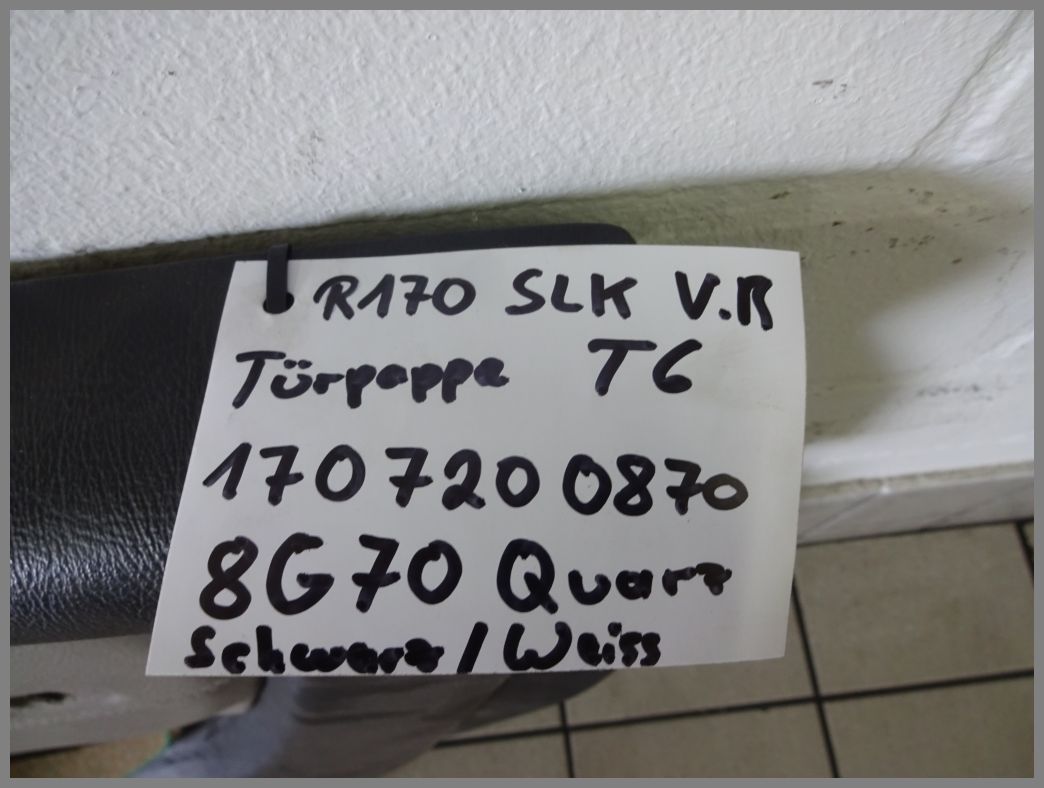 R170 SLK V.R
Türpappe T6
170 720 0870
8G70 Quarz
Schwarz/Weiss